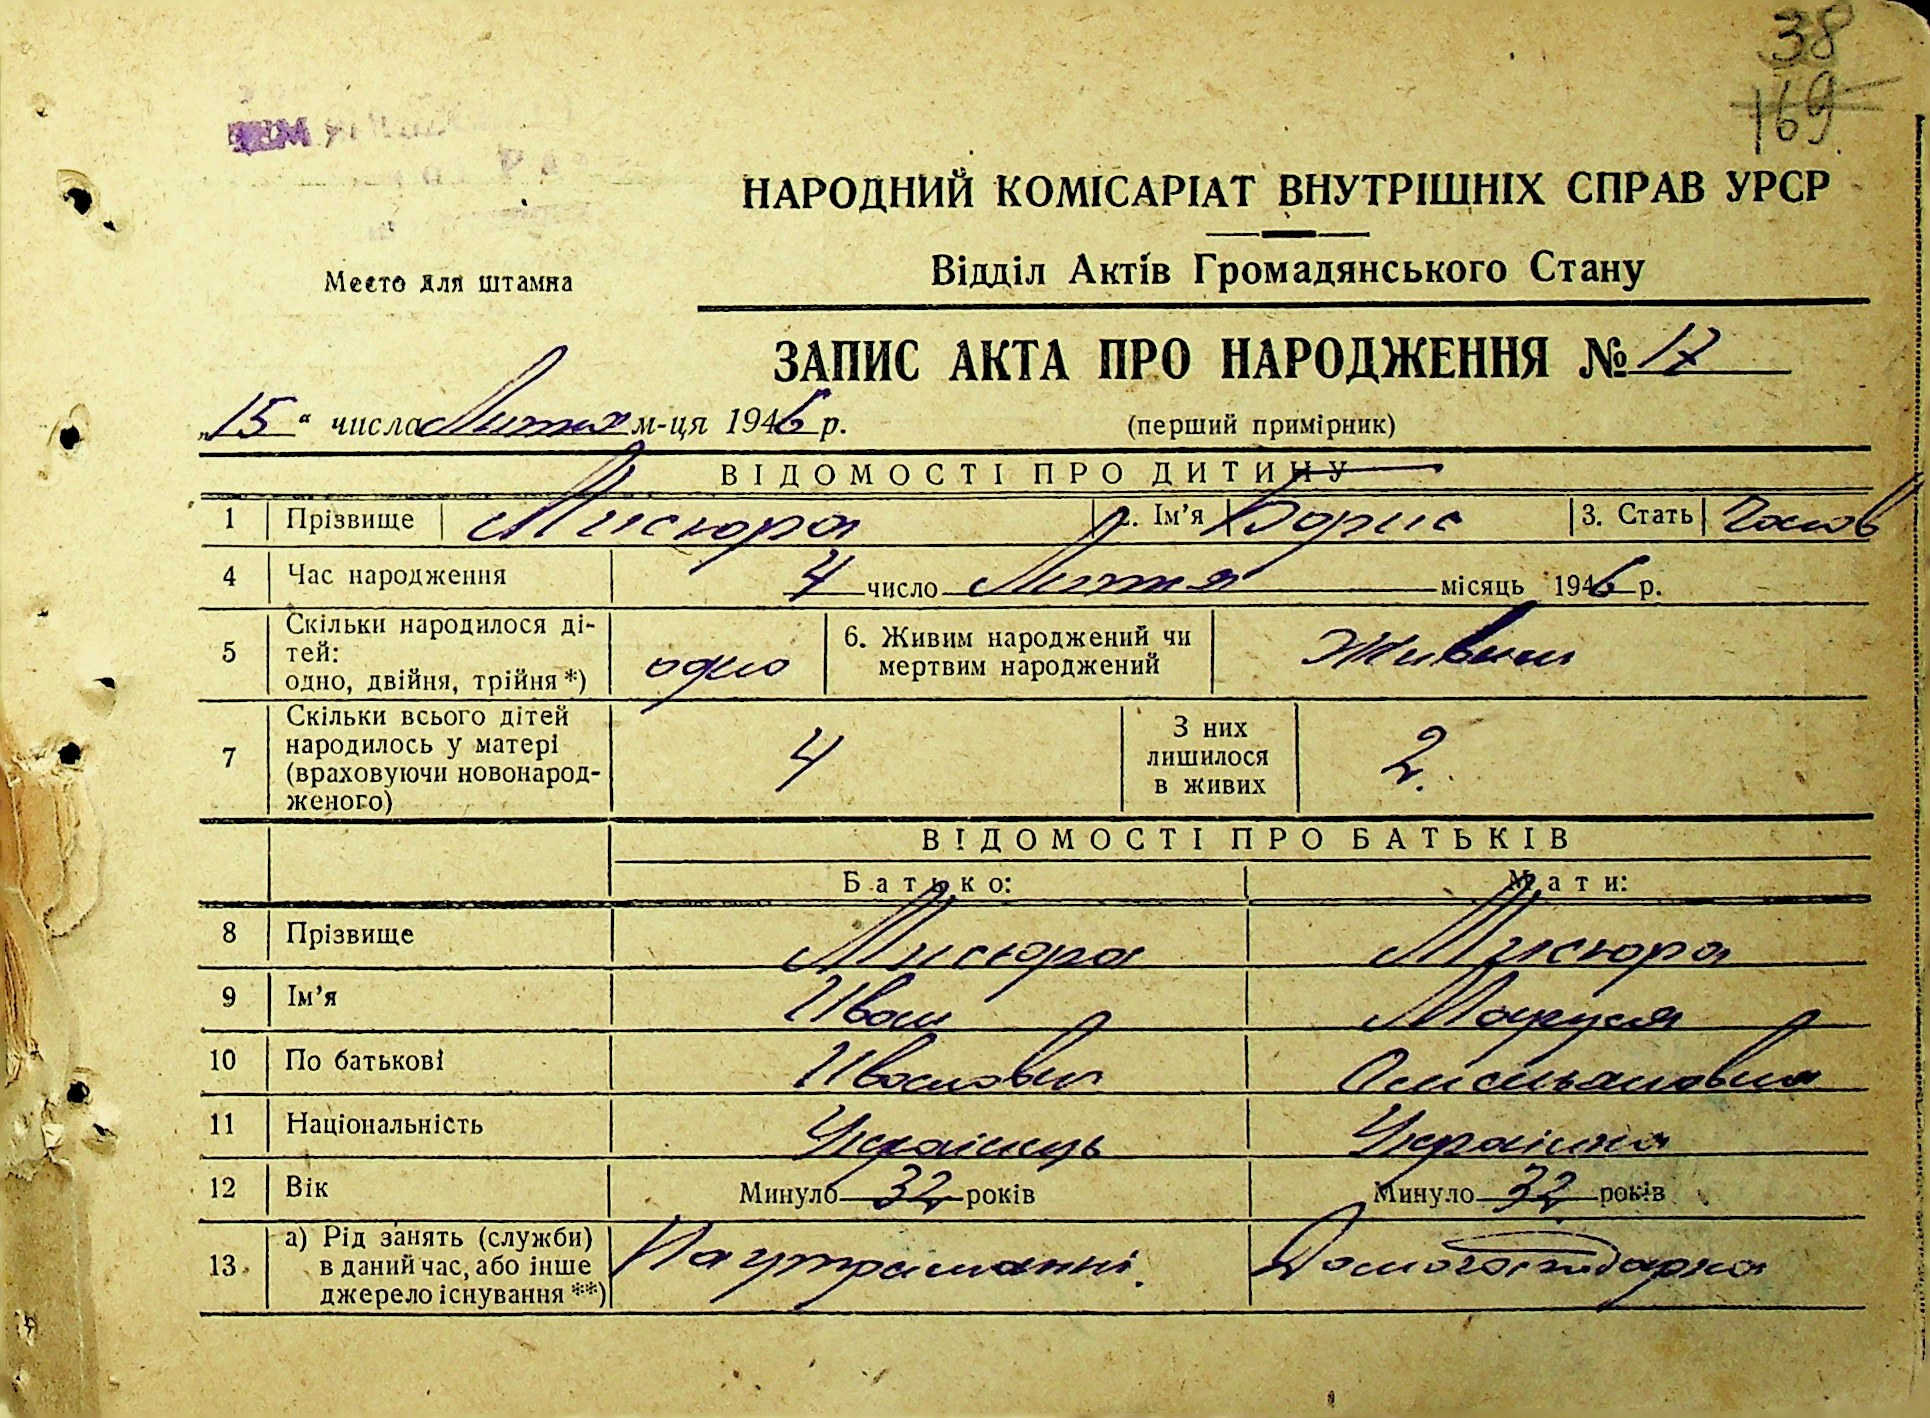 38
169
НАРОДНИЙ КОМІСАРІАТ ВНУТРІШНІХ СПРАВ УРСР
Відділ Актів Громадянського Стану
Место для штампа
ЗАПИС АКТА ПРО НАРОДЖЕННЯ № 17
„15“ числа Лютня м-ця 1946 р. (перший примірник)
ВІДОМОСТІ ПРО ДИТИНУ
1 Прізвище Мисюра 2. Ім’я Борис 3. Стать Чолов
4 Час народження 4 число Лютня місяць 1946 р.
5 Скільки народилося ді-
тей:
одно, двійня, трійня *) одно 6. Живим народжений чи
мертвим народжений Живим
7 Скільки всього дітей
народилось у матері
(враховуючи новонарод-
женого) 4 З них
лишилося
в живих 2.
ВІДОМОСТІ ПРО БАТЬКІВ
Батько: Мати:
8 Прізвище Мисюра Мисюра
9 Ім’я Иван Маруся
10 По батькові Иванович Омельяновна
11 Національність Українець Українка
12 Вік Минуло 32 років Минуло 32 років
13 а) Рід занять (служби)
в даний час, або інше
джерело існування **) На утриманні. Домогосподарка